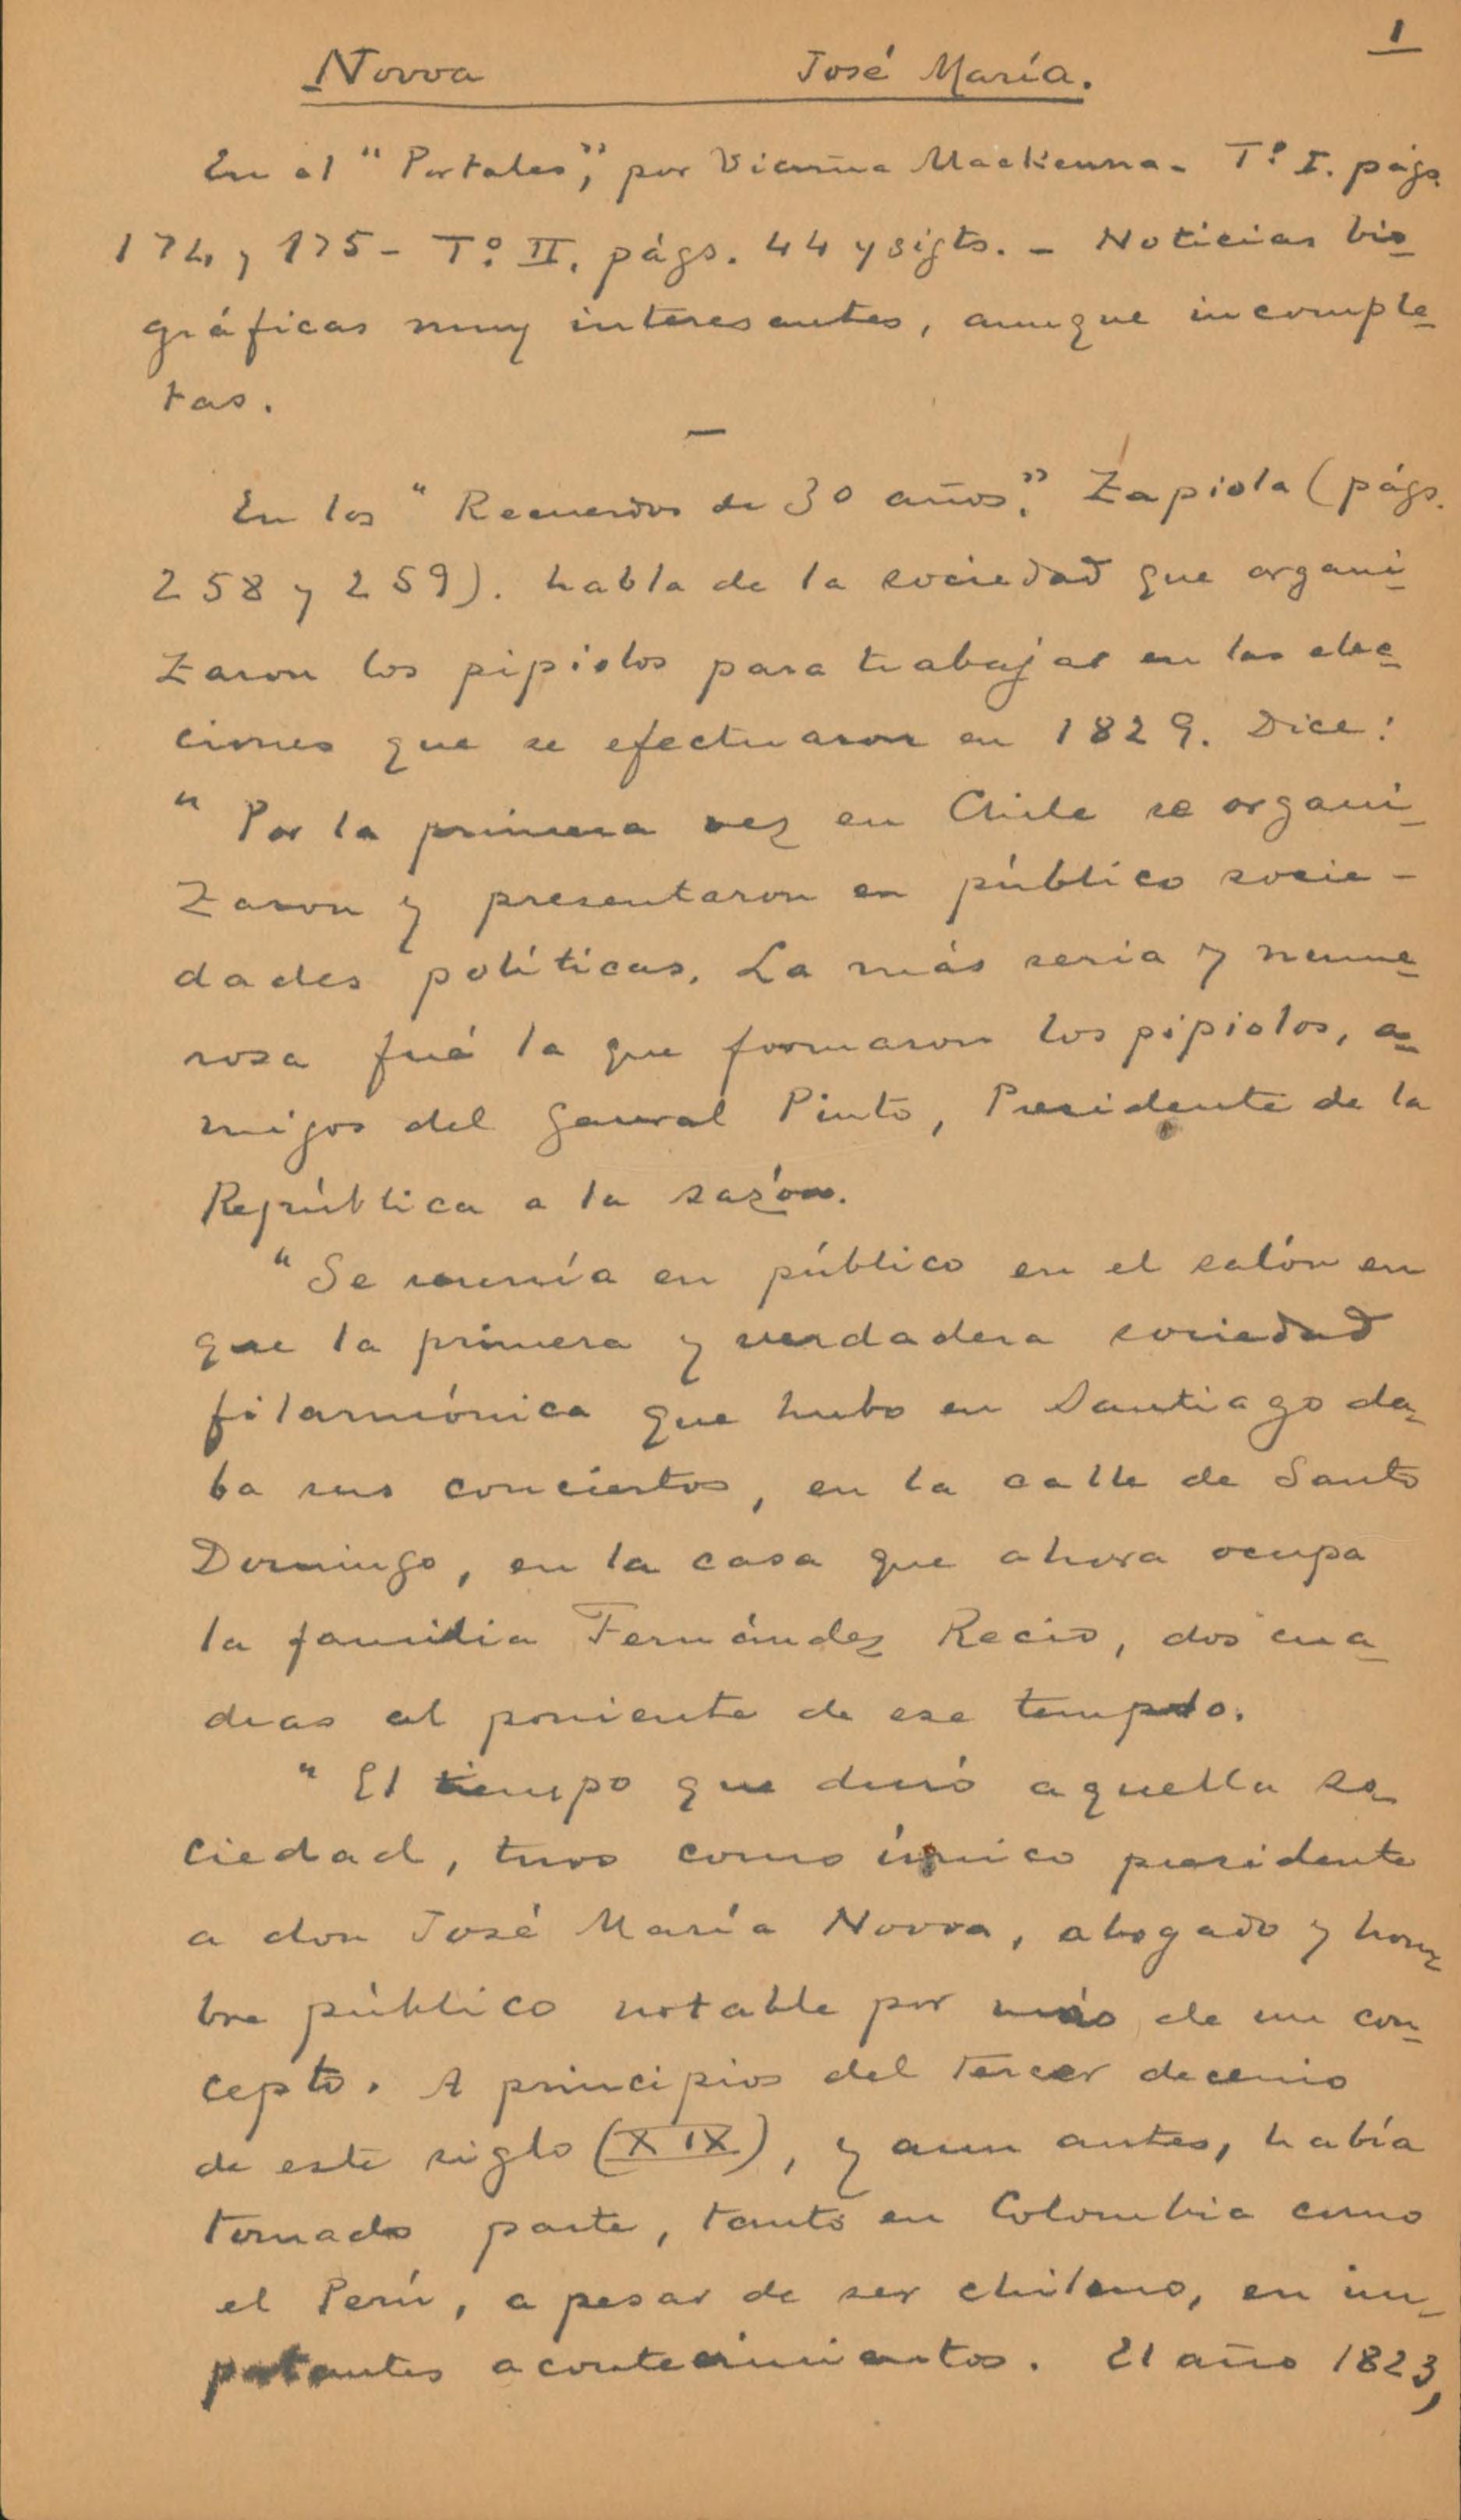 1
Novoa José María.
En el "Portales", por Vicuña Mackenna. Tº I. págs.
174, y 175 - Tº II. págs. 44 y sigts. - Noticias bio
gráficas muy interesantes, aunque incomple
tas.
—
En los "Recuerdos de 30 años". Zapiola (págs.
258 y 259). habla de la sociedad que organi
zaron los pipiolos para trabajar en las elec
ciones que se efectuaron en 1829. Dice:
"Por la primera vez en Chile se organi
zaron y presentaron en público socie-
dades políticas. La más seria y nume
rosa fué la que formaron los pipiolos, a
migos del General Pinto, Presidente de la
República a la sazón.
"Se reunía en público en el salón en
que la primera y verdadera sociedad
filarmónica que hubo en Santiago da
ba sus conciertos, en la calle de Santo
Domingo, en la casa que ahora ocupa
la familia Fernández Recio, dos cua
dras al poniente de ese templo.
"El tiempo que duró aquella so
ciedad, tuvo como único presidente
a don José María Novoa, abogado y hom
bre público notable por más de un con
cepto. A principios del tercer decenio
de este siglo (XIX), y aun antes, había
tomado parte, tanto en Colombia como
el Perú, a pesar de ser chileno, en im
portantes acontecimientos. El año 1823,